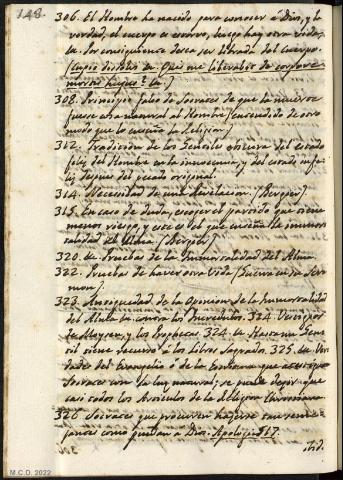 148.
306. El Hombre ha nacido para conocer á Dios, y la
verdad, el cuerpo es estorvo, luego hay otra vida
la. Por consiguiente desea ser librado del cuerpo.
(Cupio dissolvi &a. Quis me liberabit de corpore
mortis hujus? &a.)
308. Principio falso de Socrates de que la muerte
fuese cosa natural al Hombre (entendido de otro
modo que lo enseña la Religion)
312. Tradicion de los Gentiles obscura del estado
feliz del Hombre en la innocencia, y del estado infe
liz despues del pecado original.
314. Necesidad de una Revelacion. (Bergier)
315. En caso de duda, escoger el partido que tiene
menor riesgo, y este es el que enseña la inmor
talidad del Alma. (Bergier)
320. &a. Pruebas de la Inmortalidad del Alma.
322. Pruebas de haver otra Vida (Sermon)
323. Antiguedad de la Opinion de la Inmortalidad
del Alma &a. contra los Incredulos. 324.
los Moyses, y los Prophetas. 324. La Historia Gen
til tiene recurso á los Libros Sagrados. 325. La Ver
dad del Evangelio
Socrates con la luz natural; se puede decir que
casi todos los Articulos de la Religion Christiana.
326. Socrates que procuren hacerse
jantes como puedan a Dios. Apologia 517.
ibid.
M.C.D. 2022